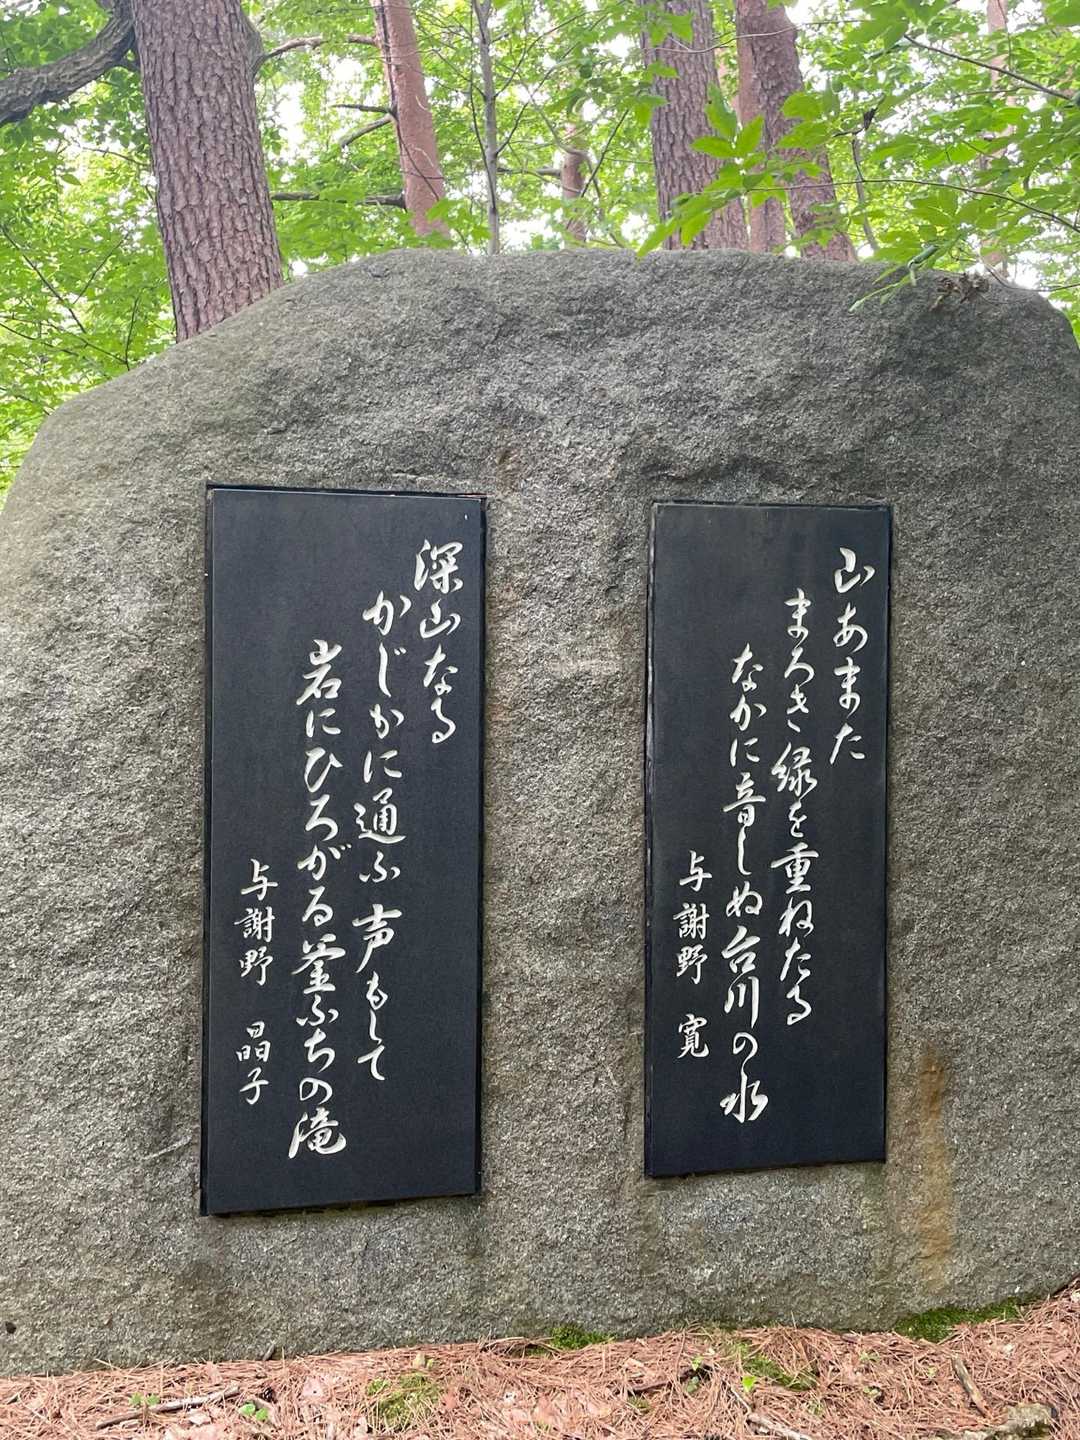 山あまた
まろき緑を重ねたる
なかに音しぬ台川の水
与謝野 寛
深山なる
かじかに通ふ声もして
岩にひろがる釜ふちの滝
与謝野 晶子